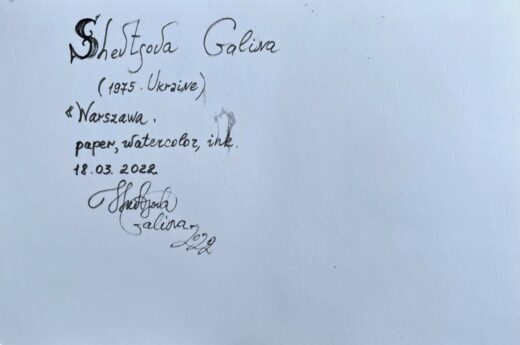 Shevtsova Galina
(1975. Ukraine)
"Warszawa.
paper, watercolor, ink.
18.03.2022
Shevtsova
Galina
2022